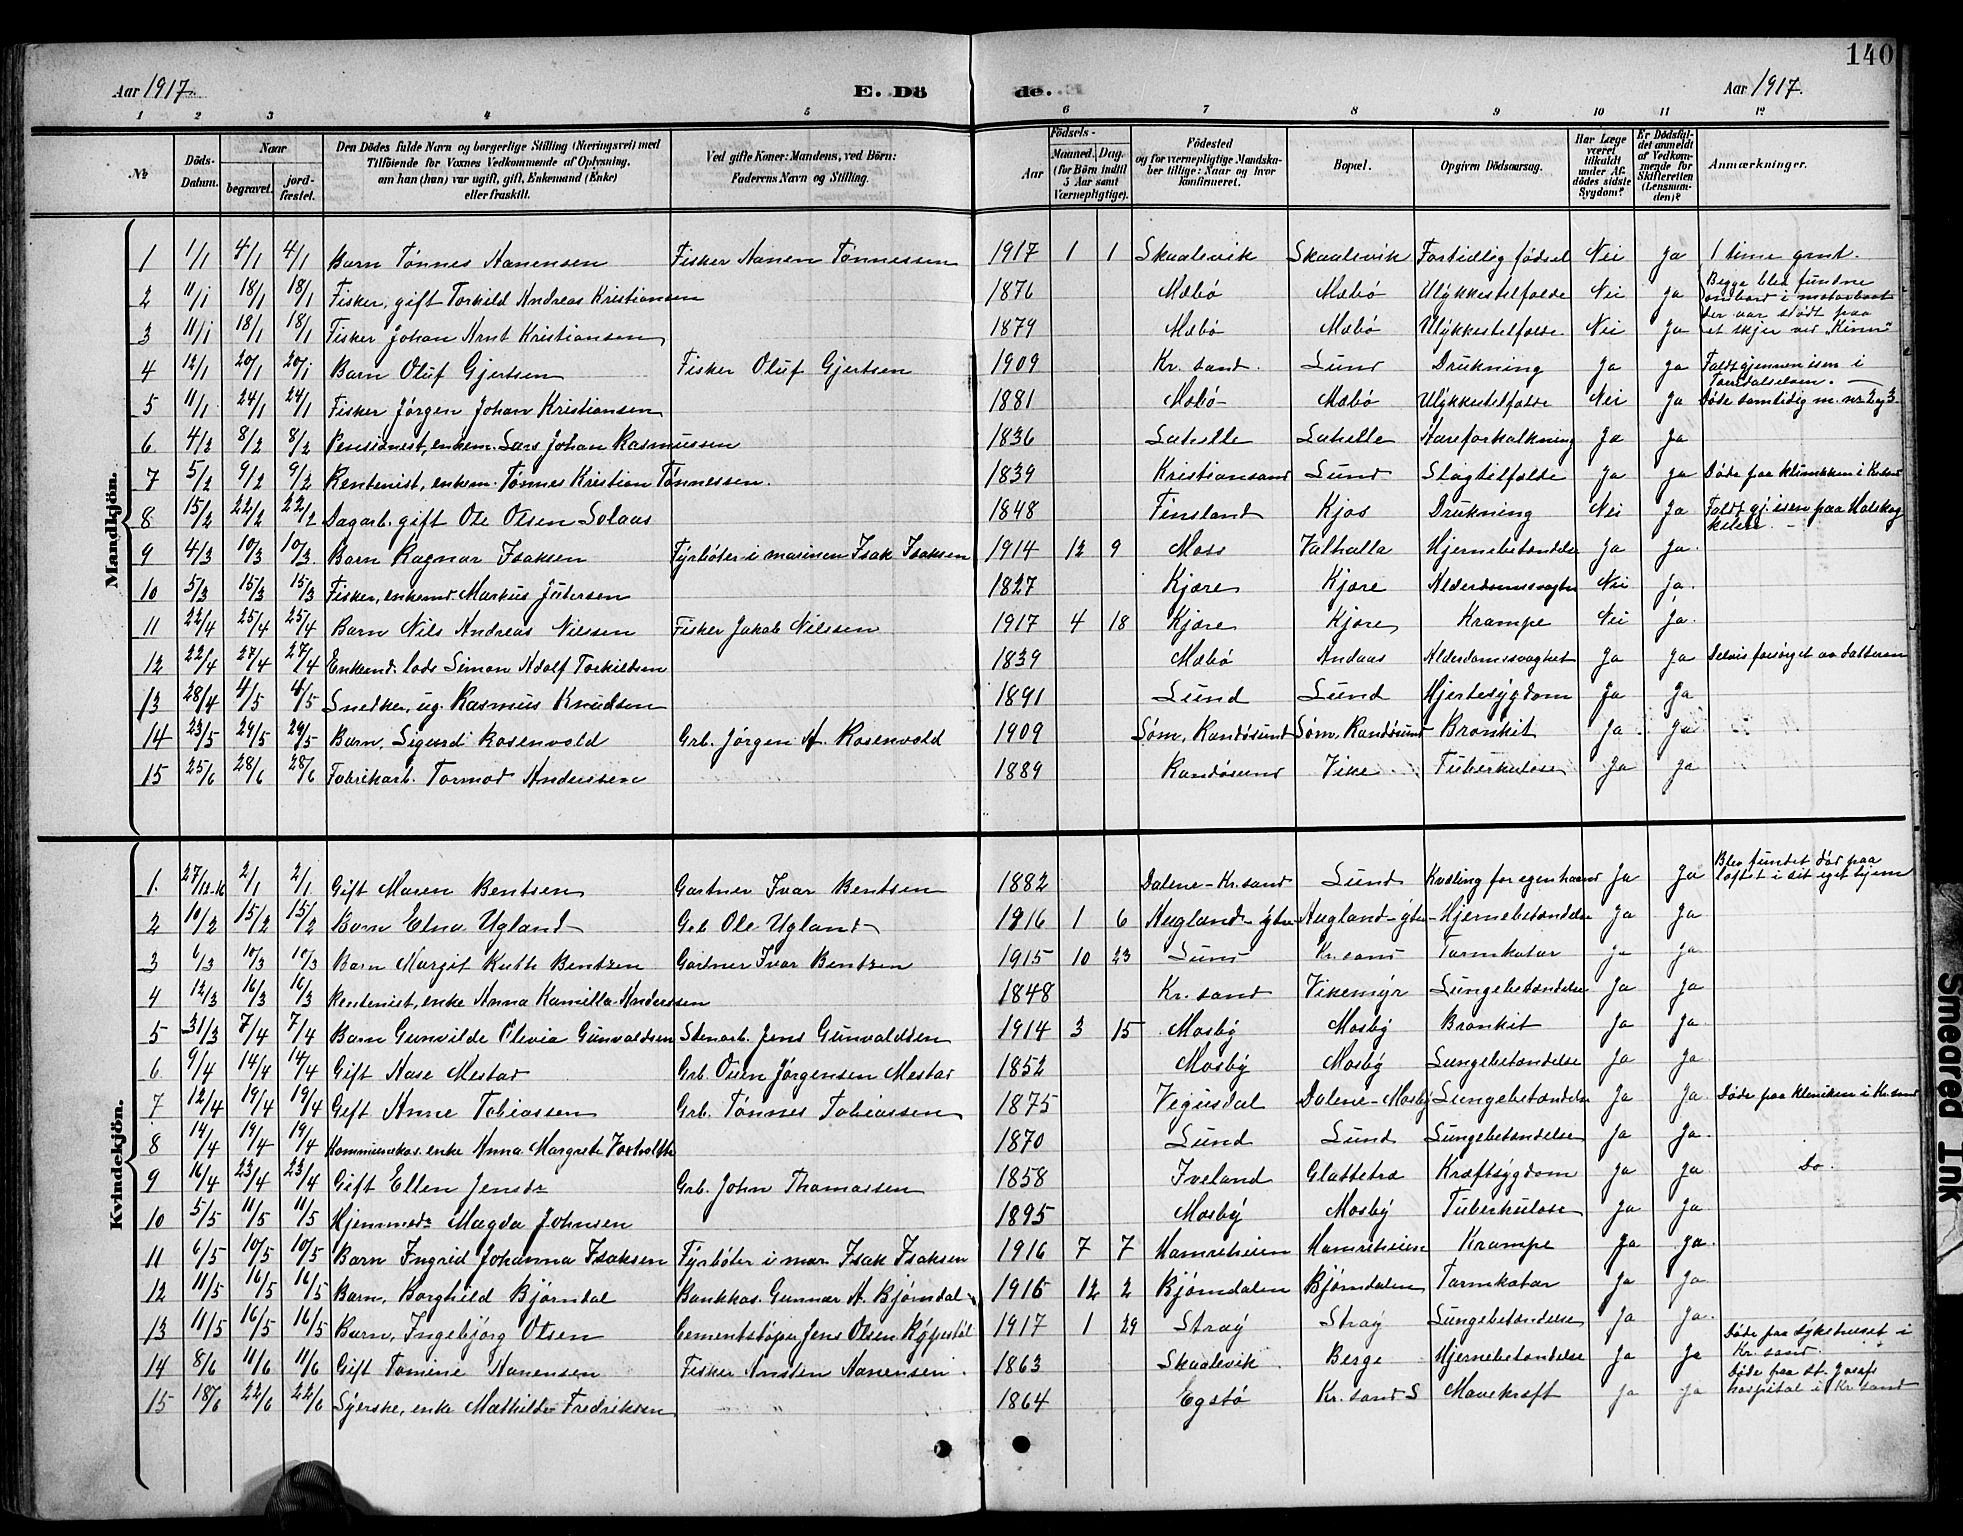 140
Aar 1917. E. Dö de. Aar 1917.
1 2 3 4 5 6 7 8 9 10 11 12
№ Döds-Datum. Naar begravet. jord-fæstet. Den Dödes fulde Navn og borgerlige Stilling (Næringsvei) med Tilföiende for Voxnes Vedkommende af Oplysning, om han (hun) var ugift, gift, Enkemand (Enke) eller fraskilt. Ved gifte Koner: Mandens, ved Börn: Faderens Navn og Stilling. Födsels- Aar Maaned. Dag. (for Börn indtil 5 Aar samt Værnepligtige). Födested og for værnepligtige Mandskaber tillige: Naar og hvor konfirmeret. Bopæl. Opgiven Dödsaarsag. Har Læge været tilkaldt under Afdödes sidste Sygdom? Er Dödsfaldet anmeldt af Vedkommende for Skifteretten (Lensmanden)? Anmærkninger.
Mandkjön.
1 1/1 4/1 4/1 Barn Tønnes Hanensen Fisker Hanen Tønnessen 1917 1 1 Skaalevik Skaalevik Fortidlig fødsel Nei Ja 1 time gml.
2 11/1 18/1 18/1 Fisker, gift Torkild Andreas Kristiansen 1876 Mæbø Mæbø Ulykkestilfælde Nei Ja Begge blev fundne ombord i motorbaat
3 11/1 18/1 18/1 Fisker Johan Arnt Kristiansen 1879 Mæbø Mæbø Ulykkestilfælde Nei Ja der var stødt paa et skjer ved "Kinn"
4 12/1 20/1 20/1 Barn Oluf Gjertsen Fisker Oluf Gjertsen 1909 Kr.sand. Lund Drukning Ja Ja Faldt gjennem isen i Torridalselven.
5 11/1 24/1 24/1 Fisker Jørgen Johan Kristiansen 1881 Mæbø Mæbø Ulykkestilfælde Nei Ja Døde samtidig m. nr 2 og 3
6 4/2 8/2 8/2 Pensionist, enkem. Lars Johan Rasmussen 1836 Lahelle Lahelle Aareforkalkning Ja Ja
7 5/2 9/2 9/2 Rentenist, enkem. Tønnes Kristian Tønnessen. 1839 Kristiansand Lund Slagtilfælde Ja Ja Døde paa klinikken i Kr.sand
8 15/2 22/2 22/2 Dagarb. gift Ole Olsen Solaas 1848 Finsland Kjos Drukning Nei Ja Faldt gj. isen paa kilen
9 4/3 10/3 10/3 Barn Ragnar Isaksen Fyrbøter i marinen Isak Isaksen 1914 12 9 Moss Valhalla Hjernebetændelse Ja Ja.
10 5/3 15/3 15/3 Fisker, enkemd Markus Jutersen 1827 Kjære Kjære Alderdomssvaghet Nei Ja.
11 22/4 25/4 25/4 Barn Nils Andreas Nilssen Fisker Jakob Nilssen 1917 4 18 Kjære Kjære Krampe Nei Ja.
12 22/4 27/4 27/4 Enkemd. lods Simon Adolf Torkildsen 1839 Mæbø Andaas Alderdomssvaghet Ja Ja Delvis forsørget av datteren
13 28/4 4/5 4/5 Snedker, ug. Rasmus Knudsen 1891 Lund Lund Hjertesygdom Ja Ja
14 23/5 29/5 29/5 Barn, Sigurd Rosenvold Grb. Jørgen A. Rosenvold 1909 Søm, Randøsund Søm, Randøsund Bronkit Ja Ja
15 25/6 28/6 28/6 Fabrikarb. Tormod Anderssen 1889 Randøsund Vike Tuberkulose Ja Ja
Kvindekjön.
1. 27/12-16 2/1 2/1 Gift Maren Bentsen Gartner Ivar Bentsen 1882 Dalene-Kr.sand Lund Kvæling for egen haand Ja Ja Blev fundet død paa loftet i sit eget hjem
2 10/2 15/2 15/2 Barn Elna Ugland Grb Ole Ugland 1916 1 6 Augland-ytre Augland-ytre Hjernebetændelse Ja Ja
3 6/3 10/3 10/3 Barn Margit Ruth Bentzen Gartner Ivar Bentzen 1915 10 23 Lund Kr.sand Tarmkatar Ja Ja
4 12/3 16/3 16/3 Rentenist, enke Anna Kamilla Anderssen 1848 Kr.sand Vikemyr Lungebetændelse Ja Ja
5 31/3 7/4 7/4 Barn Gunvilde Olivia Gunvaldsen Stenarb. Jens Gunvaldsen 1914 3 15 Mosby Mosby Bronkit Ja Ja
6 9/4 14/4 14/4 Gift Aase Mestad Grb. Osen Jørgensen Mestad 1852 Mosby Mosby Lungebetændelse Ja Ja
7 12/4 19/4 19/4 Gift Anne Tobiassen Grb. Tønnes Tobiassen 1875 Vegusdal Dalene-Mosby Lungebetændelse Ja Ja Døde paa kliniken i Kr.sand
8 14/4 19/4 19/4 enke Anna Margrete 1870 Lund Lund Lungebetændelse Ja Ja.
9 16/4 23/4 23/4 Gift Ellen Jensdr Grb. John Thomassen 1858 Iveland Glattetra Kræftsygdom Ja Ja Do.
10 5/5 11/5 11/5 Hjemmedr Magda Johnsen 1895 Mosby Mosby Tuberkulose Ja Ja
11 6/5 10/5 10/5 Barn Ingrid Johanna Isaksen Fyrbøter i mar. Isak Isaksen 1916 7 7 Hamreheien Hamreheien Krampe Ja Ja.
12 11/5 16/5 16/5 Barn, Borghild Bjørndal Bankkas. Gunnar A. Bjørndal 1916 12 2 Bjørndalen Bjørndalen Tarmkatar Ja Ja
13 11/5 16/5 16/5 Barn, Ingebjørg Olsen Cementstøper Jens Olsen Rypestøl 1917 1 29 Stray Stray Lungebetændelse Ja Ja.
14 8/6 11/6 11/6 Gift Tomine Hanensen Fisker Ansten Hanensen. 1863 Skaalevik Berge Hjernebetændelse Ja Ja Døde paa sykehuset i Kr.sand.
15 18/6 22/6 22/6 Syerske, enke Mathilde Fredriksen 1864 Egstø Kr.sand S Mavekræft Ja Ja Døde paa St. Josefs hospital i Kr.sand
Smeared Ink